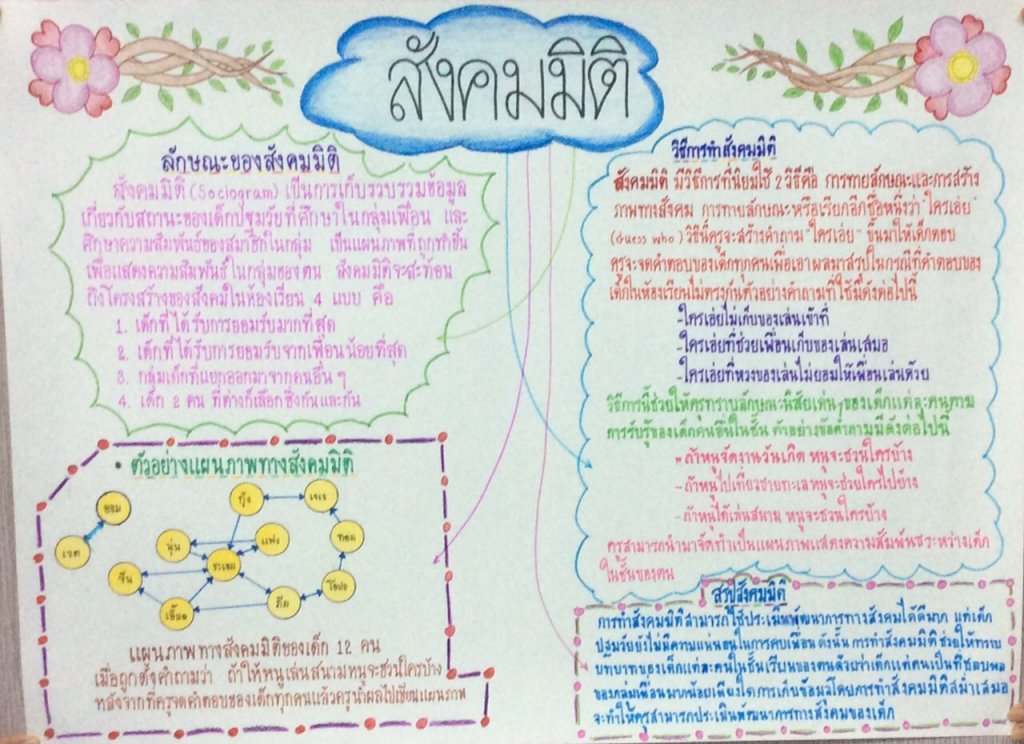 สังคมมิติ
ลักษณะของสังคมมิติ
สังคมมิติ (Sociogram) เป็นการเก็บรวบรวมข้อมูล
เกี่ยวกับสถานะของเด็กปฐมวัยที่ศึกษาในกลุ่มเพื่อน และ
ศึกษาความสัมพันธ์ของสมาชิกในกลุ่ม เป็นแผนภาพที่ถูกทำขึ้น
เพื่อแสดงความสัมพันธ์ในกลุ่มของตน สังคมมิติจะสะท้อน
ถึงโครงสร้างของสังคมในห้องเรียน 4 แบบ คือ
1. เด็กที่ได้รับการยอมรับมากที่สุด
2. เด็กที่ได้รับการยอมรับจากเพื่อนน้อยที่สุด
3. กลุ่มเด็กที่แยกออกมาจากคนอื่น ๆ
4. เด็ก 2 คน ที่ต่างก็เลือกซึ่งกันและกัน
• ตัวอย่างแผนภาพทางสังคมมิติ
ออม
เจต
กุ้ง
เจเจ
พุ่น
แพง
ทอม
จีน
ระเอม
โอปอ
เอื้อย
ภีม
แผนภาพทางสังคมมิติของเด็ก 12 คน
เมื่อถูกตั้งคำถามว่า ถ้าให้หนูเล่นสนามหนูจะชวนใครบ้าง
หลังจากที่ครูจดคำตอบของเด็กทุกคนแล้วครูนำผลไปเขียนแผนภาพ
วิธีการทำสังคมมิติ
สังคมมิติ มีวิธีการที่นิยมใช้ 2 วิธีคือ การทายลักษณะและการสร้าง
ภาพทางสังคม การทายลักษณะหรือเรียกอีกชื่อหนึ่งว่า "ใครเอ่ย"
(Guess who) วิธีนี้ครูจะสร้างคำถาม "ใครเอ่ย" ขึ้นมาให้เด็กตอบ
ครูจะจดคำตอบของเด็กทุกคนเพื่อเอาผลมาสรุปในกรณีที่คำตอบของ
เด็กในห้องเรียนไม่ตรงกันตัวอย่างคำถามที่ใช้มีดังต่อไปนี้
-ใครเอ่ยไม่เก็บของเล่นเข้าที่
-ใครเอ่ยที่ช่วยเพื่อนเก็บของเล่นเสมอ
-ใครเอ่ยที่หวงของเล่นไม่ยอมให้เพื่อนเล่นด้วย
วิธีการนี้ช่วยให้ครูทราบลักษณะนิสัยเด่นๆของเด็กแต่ละคนตาม
การรับรู้ของเด็กคนอื่นในชั้น ตัวอย่างข้อคำถามมีดังต่อไปนี้
- ถ้าหนูจัดงานวันเกิด หนูจะชวนใครบ้าง
- ถ้าหนูไปเที่ยวชายทะเลหนูจะชวนใครไปบ้าง
- ถ้าหนูได้เล่นสนาม หนูจะชวนใครบ้าง
ครูสามารถนำมาจัดทำเป็นแผนภาพแสดงความสัมพันธ์ระหว่างเด็ก
ในชั้นของตน
สรุปสังคมมิติ
การทำสังคมมิติสามารถใช้ประเมินพัฒนาการทางสังคมได้ดีมาก แต่เด็ก
ปฐมวัยยังไม่มีความแน่นอนในการคบเพื่อน ดังนั้น การทำสังคมมิติ ช่วยให้ทราบ
บทบาทของเด็กแต่ละคนในชั้นเรียนของตนด้วยว่าเด็กแต่คนเป็นที่ชอบพอ
ของกลุ่มเพื่อนมากน้อยเพียงใดการเก็บข้อมูลโดยการทำสังคมมิติสม่ำเสมอ
จะทำให้ครูสามารถประเมินพัฒนาการทางสังคมของเด็ก